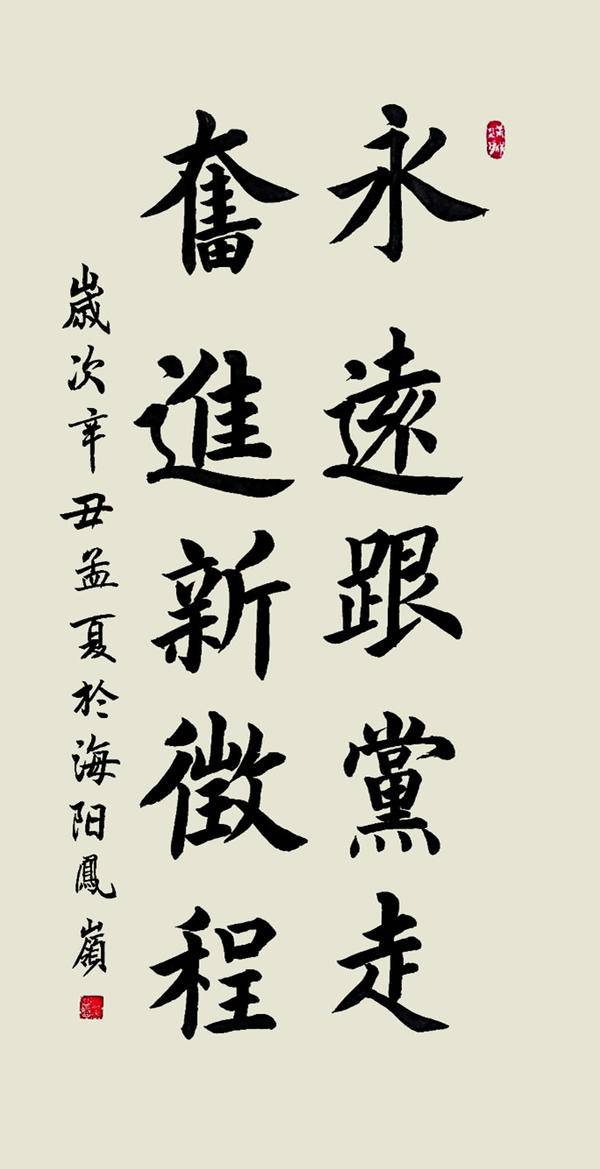 永遠跟黨走
奮進新徵程
歲次辛丑孟夏於海阳鳳嶺